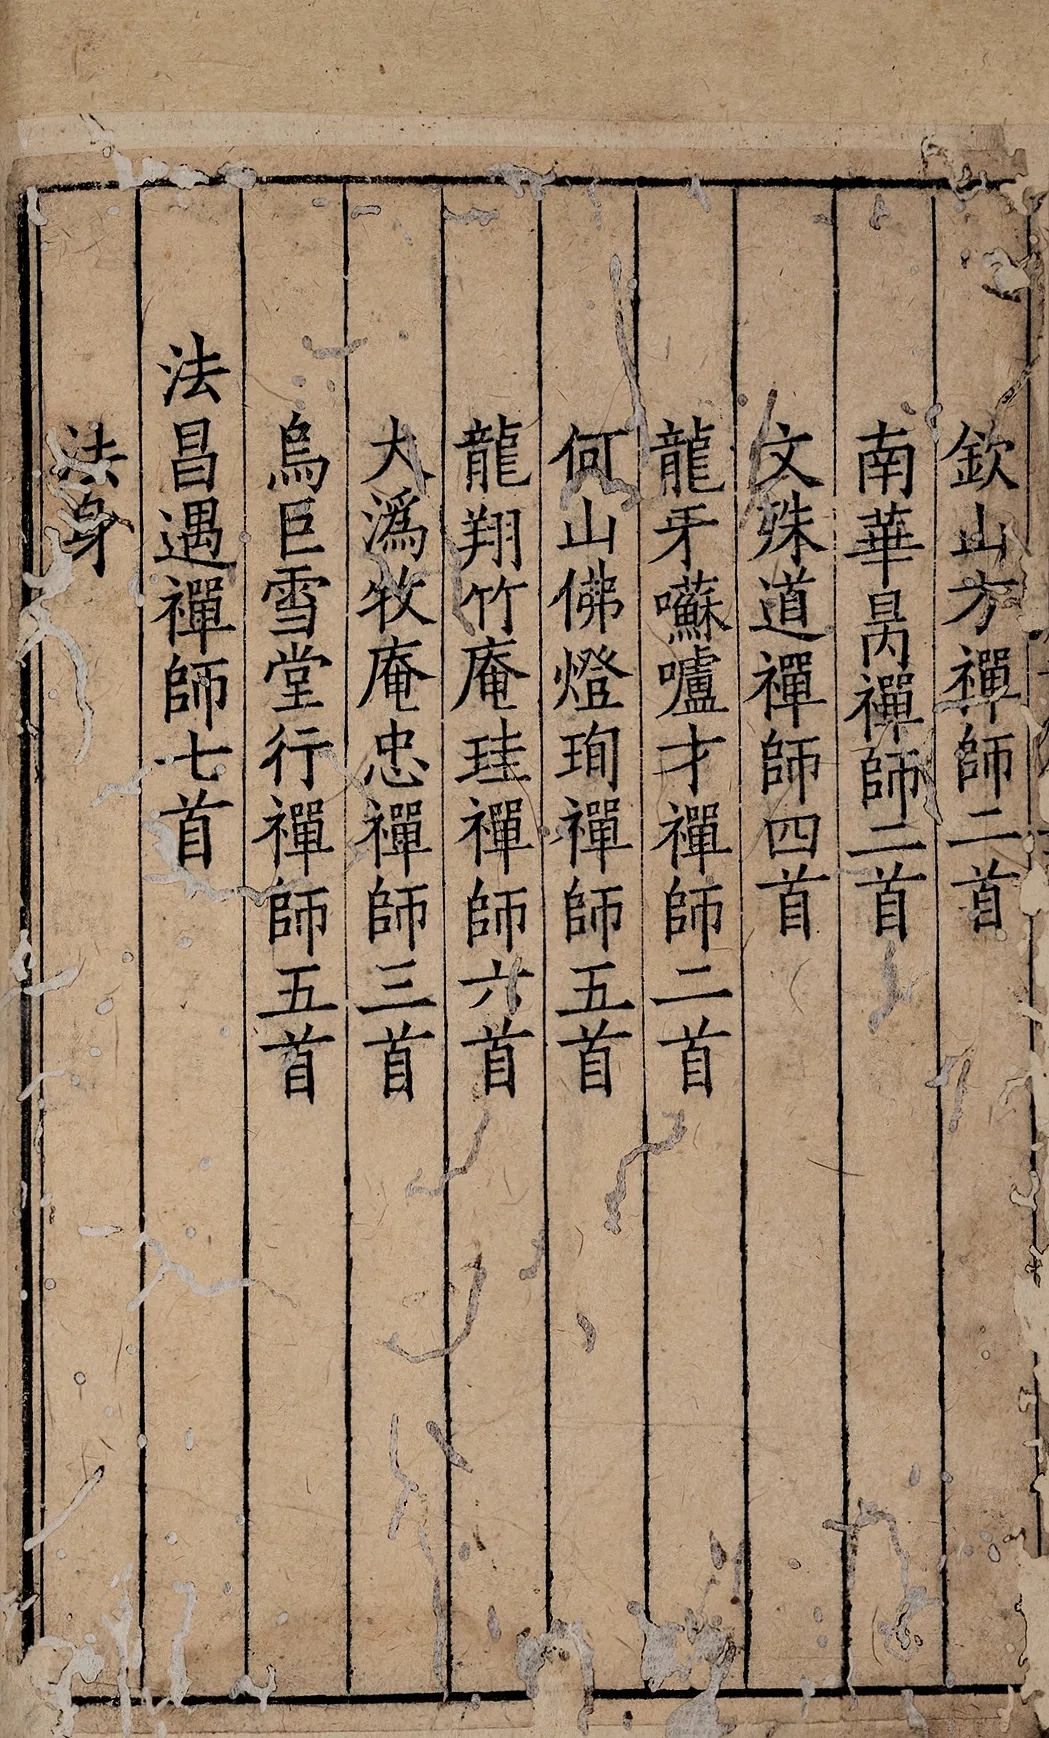 欽山方禪師二首
南華昺禪師二首
文殊道禪師四首
龍牙囌嚧才禪師二首
何山佛燈珣禪師五首
龍翔竹庵珪禪師六首
大潙牧庵忠禪師三首
烏巨雪堂行禪師五首
法昌遇禪師七首
法身